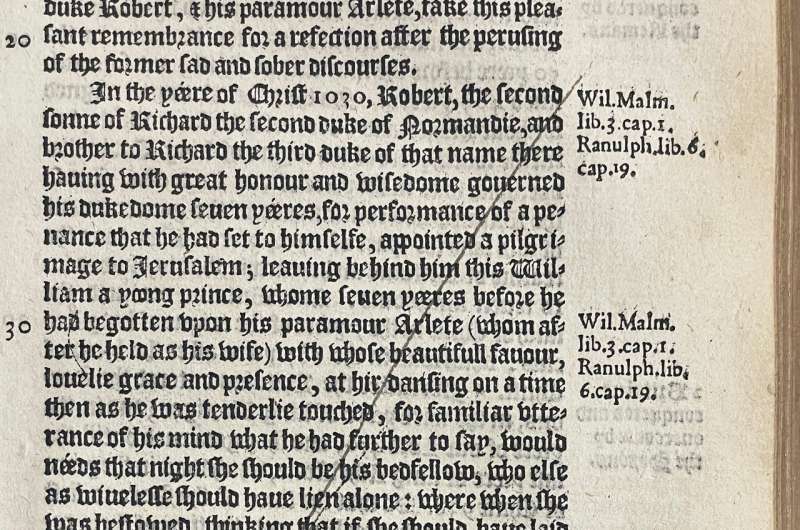 duke Robert, & his paramour Arlete, take this plea-
20 sant remembrance for a refection after the perusing
of the former sad and sober discourses.
In the yéere of Christ 1030, Robert, the second
sonne of Richard the second duke of Normandie, and
brother to Richard the third duke of that name there
hauing with great honour and wisedome gouerned
his dukedome seuen yéeres, for performance of a pe-
nance that he had set to himselfe, appointed a pilgri-
mage to Jerusalem; leauing behind him this Wil-
liam a yoong prince, whome seuen yéeres before he
30 had begotten vpon his paramour Arlete (whom af-
ter he held as his wife) with whose beautifull fauour,
louelie grace and presence, at hir dansing on a time
then as he was tenderlie touched, for familiar vtte-
rance of his mind what he had further to say, would
néeds that night she should be his bedfellow, who else
as wiuelesse should haue lien alone: where when she
was bestowed, thinking that if she should haue laid
Wil.Malm.
lib.3.cap.1.
Ranulph.lib.6.
cap.19.
Wil.Malm.
lib.3.cap.1.
Ranulph.lib.
6.cap.19.